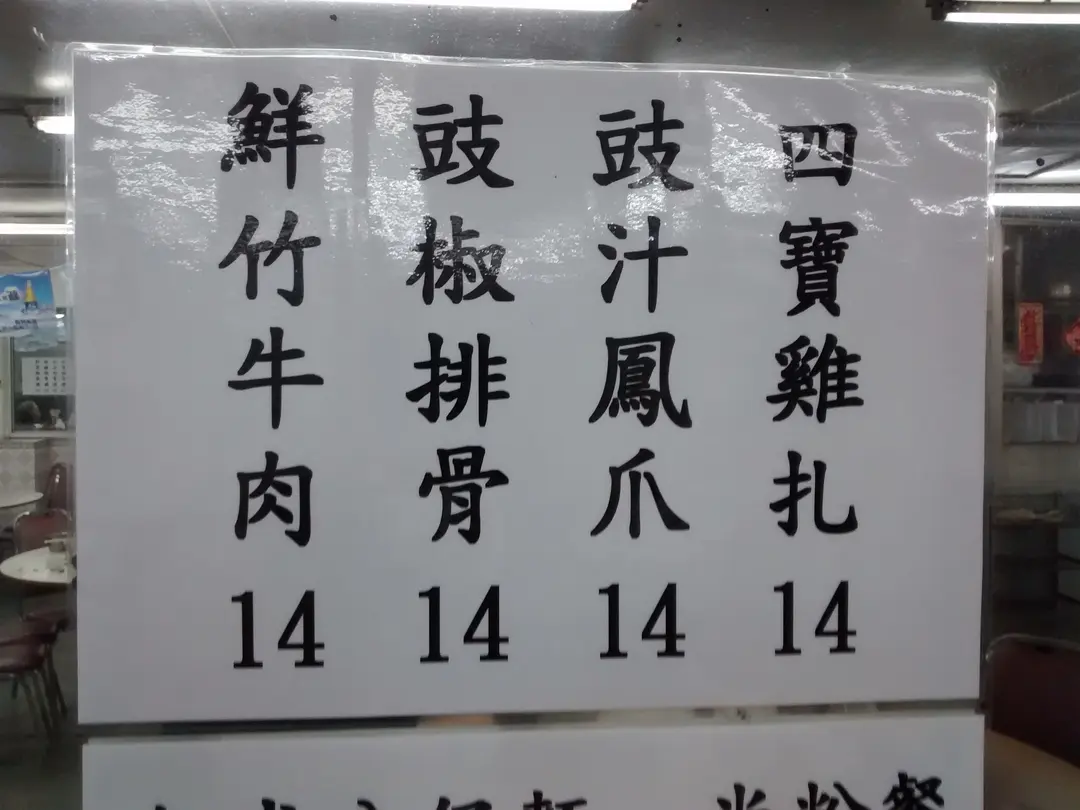 四寶雞扎14
豉汁鳳爪14
豉椒排骨14
鮮竹牛肉14